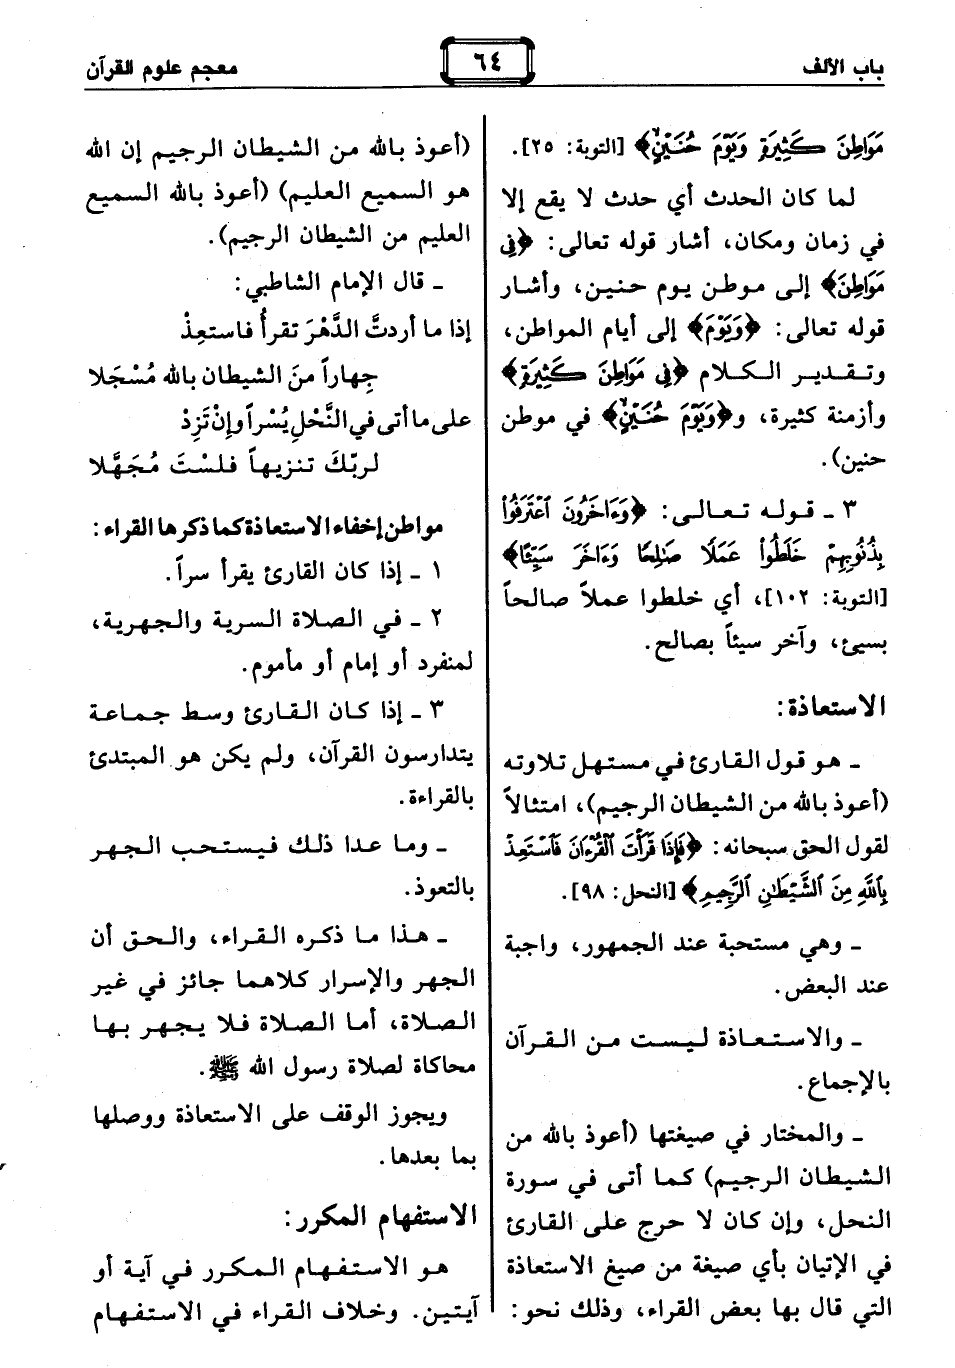 باب الألف
٦٤
معجم علوم القرآن
مَوَاطِنَ كَثِيرَةٍ وَيَوْمَ حُنَيْنٍ﴾ [التوبة: ٢٥].
لما كان الحدث أي حدث لا يقع إلا
في زمان ومكان، أشار قوله تعالى: ﴿فِي
مَوَاطِنَ﴾ إلى موطن يوم حنين، وأشار
قوله تعالى: ﴿وَيَوْمَ﴾ إلى أيام المواطن،
وتقدير الكلام ﴿فِي مَوَاطِنَ كَثِيرَةٍ﴾
وأزمنة كثيرة، و﴿وَيَوْمَ حُنَيْنٍ﴾ في موطن
حنين).
٣ ـ قوله تعالى: ﴿وَءَاخَرُونَ ٱعْتَرَفُوا۟
بِذُنُوبِهِمْ خَلَطُوا۟ عَمَلًا صَٰلِحًا وَءَاخَرَ سَيِّئًا﴾
[التوبة: ١٠٢]، أي خلطوا عملاً صالحاً
بسيئ، وآخر سيئاً بصالح.
الاستعاذة:
ـ هو قول القارئ في مستهل تلاوته
(أعوذ بالله من الشيطان الرجيم)، امتثالاً
لقول الحق سبحانه: ﴿فَإِذَا قَرَأْتَ ٱلْقُرْءَانَ فَٱسْتَعِذْ
بِٱللَّهِ مِنَ ٱلشَّيْطَٰنِ ٱلرَّجِيمِ﴾ [النحل: ٩٨].
ـ وهي مستحبة عند الجمهور، واجبة
عند البعض.
ـ والاستعاذة ليست من القرآن
بالإجماع.
ـ والمختار في صيغتها (أعوذ بالله من
الشيطان الرجيم) كما أتى في سورة
النحل، وإن كان لا حرج على القارئ
في الإتيان بأي صيغة من صيغ الاستعاذة
التي قال بها بعض القراء، وذلك نحو:
(أعوذ بالله من الشيطان الرجيم إن الله
هو السميع العليم) (أعوذ بالله السميع
العليم من الشيطان الرجيم).
ـ قال الإمام الشاطبي:
إذا ما أردتَّ الدَّهْرَ تقرأُ فاستعِذْ
جِهاراً منَ الشيطان بالله مُسْجَلا
على ما أتى في النَّحْلِ يُسْراً وإنْ تَزِدْ
لربِّكَ تنزيهاً فلسْتَ مُجَهَّلا
مواطن إخفاء الاستعاذة كما ذكرها القراء:
١ ـ إذا كان القارئ يقرأ سراً.
٢ ـ في الصلاة السرية والجهرية،
لمنفرد أو إمام أو مأموم.
٣ ـ إذا كان القارئ وسط جماعة
يتدارسون القرآن، ولم يكن هو المبتدئ
بالقراءة.
ـ وما عدا ذلك فيستحب الجهر
بالتعوذ.
ـ هذا ما ذكره القراء، والحق أن
الجهر والإسرار كلاهما جائز في غير
الصلاة، أما الصلاة فلا يجهر بها
محاكاة لصلاة رسول الله ﷺ.
ويجوز الوقف على الاستعاذة ووصلها
بما بعدها.
الاستفهام المكرر:
هو الاستفهام المكرر في آية أو
آيتين. وخلاف القراء في الاستفهام